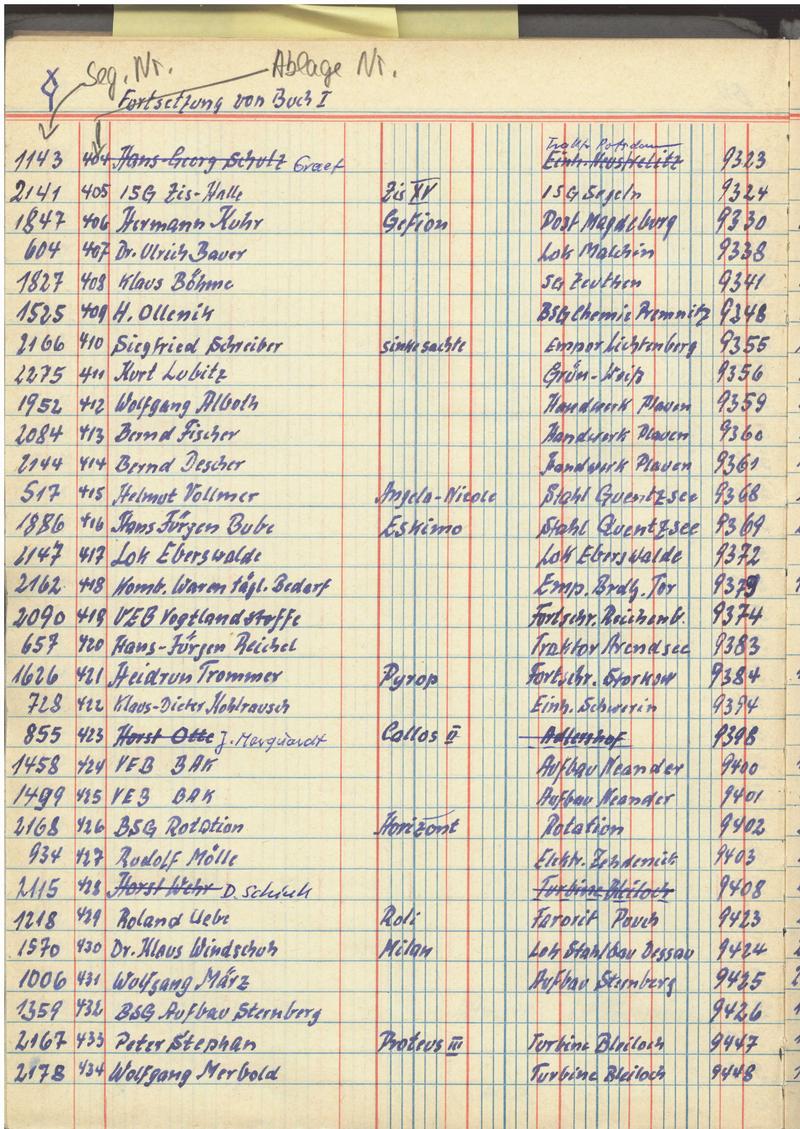 Seg. Nr. Ablage Nr.
Fortsetzung von Buch I
Trakt. Potsdam
1143 404 Hans-Georg Schulz Graef Einh. Neustrelitz 9323
2141 405 ISG Zis-Halle Zis XV ISG Segeln 9324
1847 406 Hermann Kuhr Gefion Post Magdeburg 9330
604 407 Dr. Ulrich Bauer Lok Malchin 9338
1827 408 Klaus Böhme SG Zeuthen 9341
1525 409 H. Ollenik BSG Chemie Premnitz 9348
2166 410 Siegfried Schreiber sinkesachte Empor Lichtenberg 9355
2275 411 Kurt Lubitz Grün-Weiß 9356
1952 412 Wolfgang Alboth Handwerk Plauen 9359
2084 413 Bernd Fischer Handwerk Plauen 9360
2144 414 Bernd Descher Handwerk Plauen 9361
517 415 Helmut Vollmer Angela-Nicole Stahl Quentzsee 9368
1886 416 Hans Jürgen Bube Eskimo Stahl Quentzsee 9369
2147 417 Lok Eberswalde Lok Eberswalde 9372
2162 418 Komb. Waren tägl. Bedarf Emp. Brdbg. Tor 9379
2090 419 VEB Vogtlandstoffe Fortschr. Reichenb. 9374
657 420 Hans-Jürgen Reichel Traktor Arendsee 9383
1626 421 Heidrun Trommer Pyrop Fortschr. Storkow 9384
728 422 Klaus-Dieter Kohlrausch Einh. Schwerin 9394
855 423 Horst Otte J. Marquardt Callos II Adlershof 9398
1458 424 VEB BAK Aufbau Neander 9400
1499 425 VEB BAK Aufbau Neander 9401
2168 426 BSG Rotation Horizont Rotation 9402
934 427 Rudolf Mölle Elektr. Zehdenick 9403
2115 428 Horst Wehr D. Schick Turbine Bleiloch 9408
1218 429 Roland Uebe Roli Favorit Pouch 9423
1570 430 Dr. Klaus Windschuh Milan Lok Stahlbau Dessau 9424
1006 431 Wolfgang März Aufbau Sternberg 9425
1359 432 BSG Aufbau Sternberg 9426
2167 433 Peter Stephan Proteus III Turbine Bleiloch 9447
2178 434 Wolfgang Merbold Turbine Bleiloch 9448